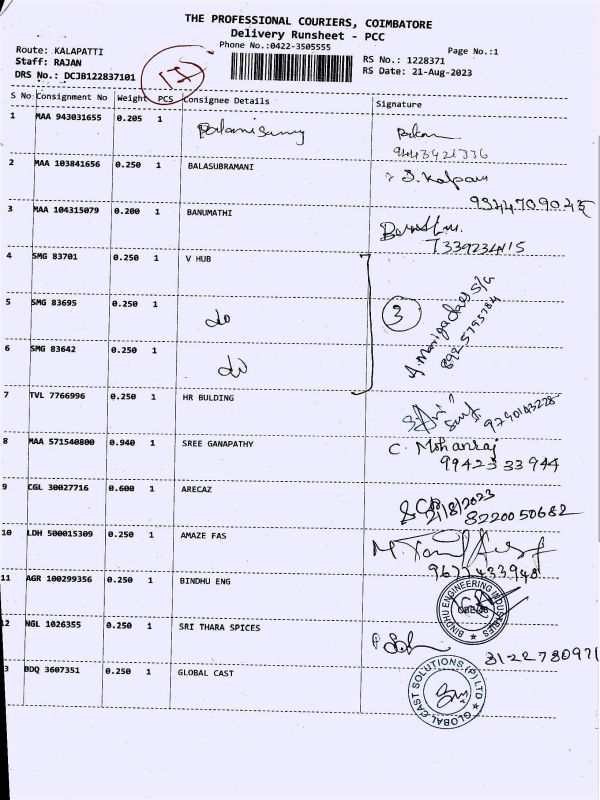 THE PROFESSIONAL COURIERS, COIMBATORE
Delivery Runsheet - PCC
Phone No.:0422-3505555
Page No.:1
Route: KALAPATTI
Staff: RAJAN
DRS No.: DCJB122837101
RS No.: 1228371
RS Date: 21-Aug-2023
S No Consignment No Weight PCS Consignee Details Signature
1 MAA 943031655 0.205 1 Palanisamy
9443421336
2 MAA 103841656 0.250 1 BALASUBRAMANI S. Kalpana
9344709045
3 MAA 104315079 0.200 1 BANUMATHI
7339234415
4 SMG 83701 0.250 1 V HUB
5 SMG 83695 0.250 1 do 3
8925795784
6 SMG 83642 0.250 1 do
7 TVL 7766996 0.250 1 HR BULDING
8 MAA 571540800 0.940 1 SREE GANAPATHY C. Mohanraj
99423 33 944
9 CGL 30027716 0.600 1 ARECAZ 21/8/2023
8220050682
10 LDH 500015309 0.250 1 AMAZE FAS
11 AGR 100299356 0.250 1 BINDHU ENG BINDHU ENGINEERING INDUSTRIES
12 NGL 1026355 0.250 1 SRI THARA SPICES
8122780971
3 BDQ 3607351 0.250 1 GLOBAL CAST GLOBAL CAST SOLUTIONS (P) LTD